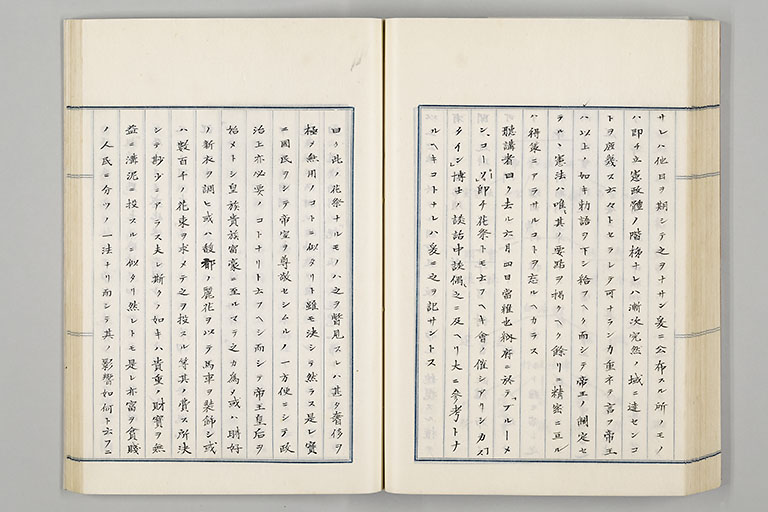 サレハ他日ヲ期シテ之ヲナサン爰ニ公布スル所ノモノ
ハ即チ立憲政體ノ階梯ナレハ漸次完然ノ域ニ達センコ
トヲ庶幾ス云々トセラレテ可ナランカ重ネテ言フ帝王
ハ以上ノ如キ勅語ヲ下シ給フヘク而シテ帝王ノ制定セ
ラル丶憲法ハ唯其ノ要點ヲ掲クヘク餘リニ精密ニ亘ル
ハ得策ニアラサルコトヲ忘ルヘカラス
聽講者曰ク去ル六月四日當維也納府ニ於テ「ブルーメ
ンコー」即チ花祭トモ云フヘキ會ノ催シアリシカス
タイン博士ノ談話中談偶之ニ及ヘリ大ニ參考トナ
ルヘキコトナレハ爰ニ之ヲ記サントス
曰ク此ノ花祭ナルモノハ之ヲ瞥見スレハ甚タ奢侈ヲ
極メ無用ノコトニ似タリト雖モ決シテ然ラス是レ實
ニ國民ヲシテ帝室ヲ尊敬セシムルノ一方便ニシテ政
治上亦必要ノコトナリト云フヘシ而シテ帝王皇后ヲ
始メトシ皇族貴族富豪ニ至ルマテ之カ為メ或ハ時好
ノ新衣ヲ調ヒ或ハ馥郁麗花ヲ以テ馬車ヲ裝飾シ或
ハ數百千ノ花束ヲ求メテ之ヲ投スル等其ノ費ス所決
シテ尠少ニアラス夫レ斯クノ如キハ貴重ノ財寶ヲ無
益ニ溝泥ニ投スルニ似タリ然レトモ是レ亦富ヲ貧賤
ノ人民ニ分ツノ一法ナリ而シテ其ノ影響如何ト云フニ